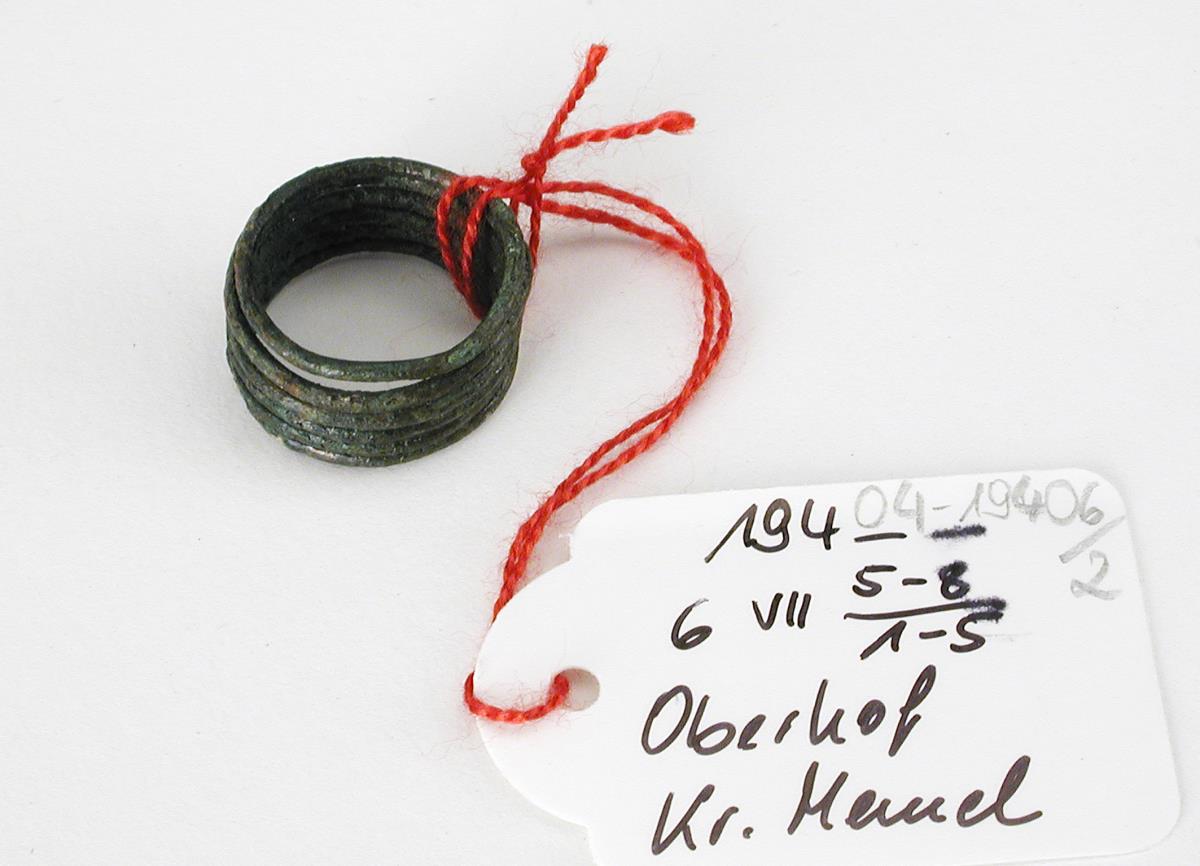 19404-19406/2
6 VII 5-8/1-5
Oberhof
Kr. Memel